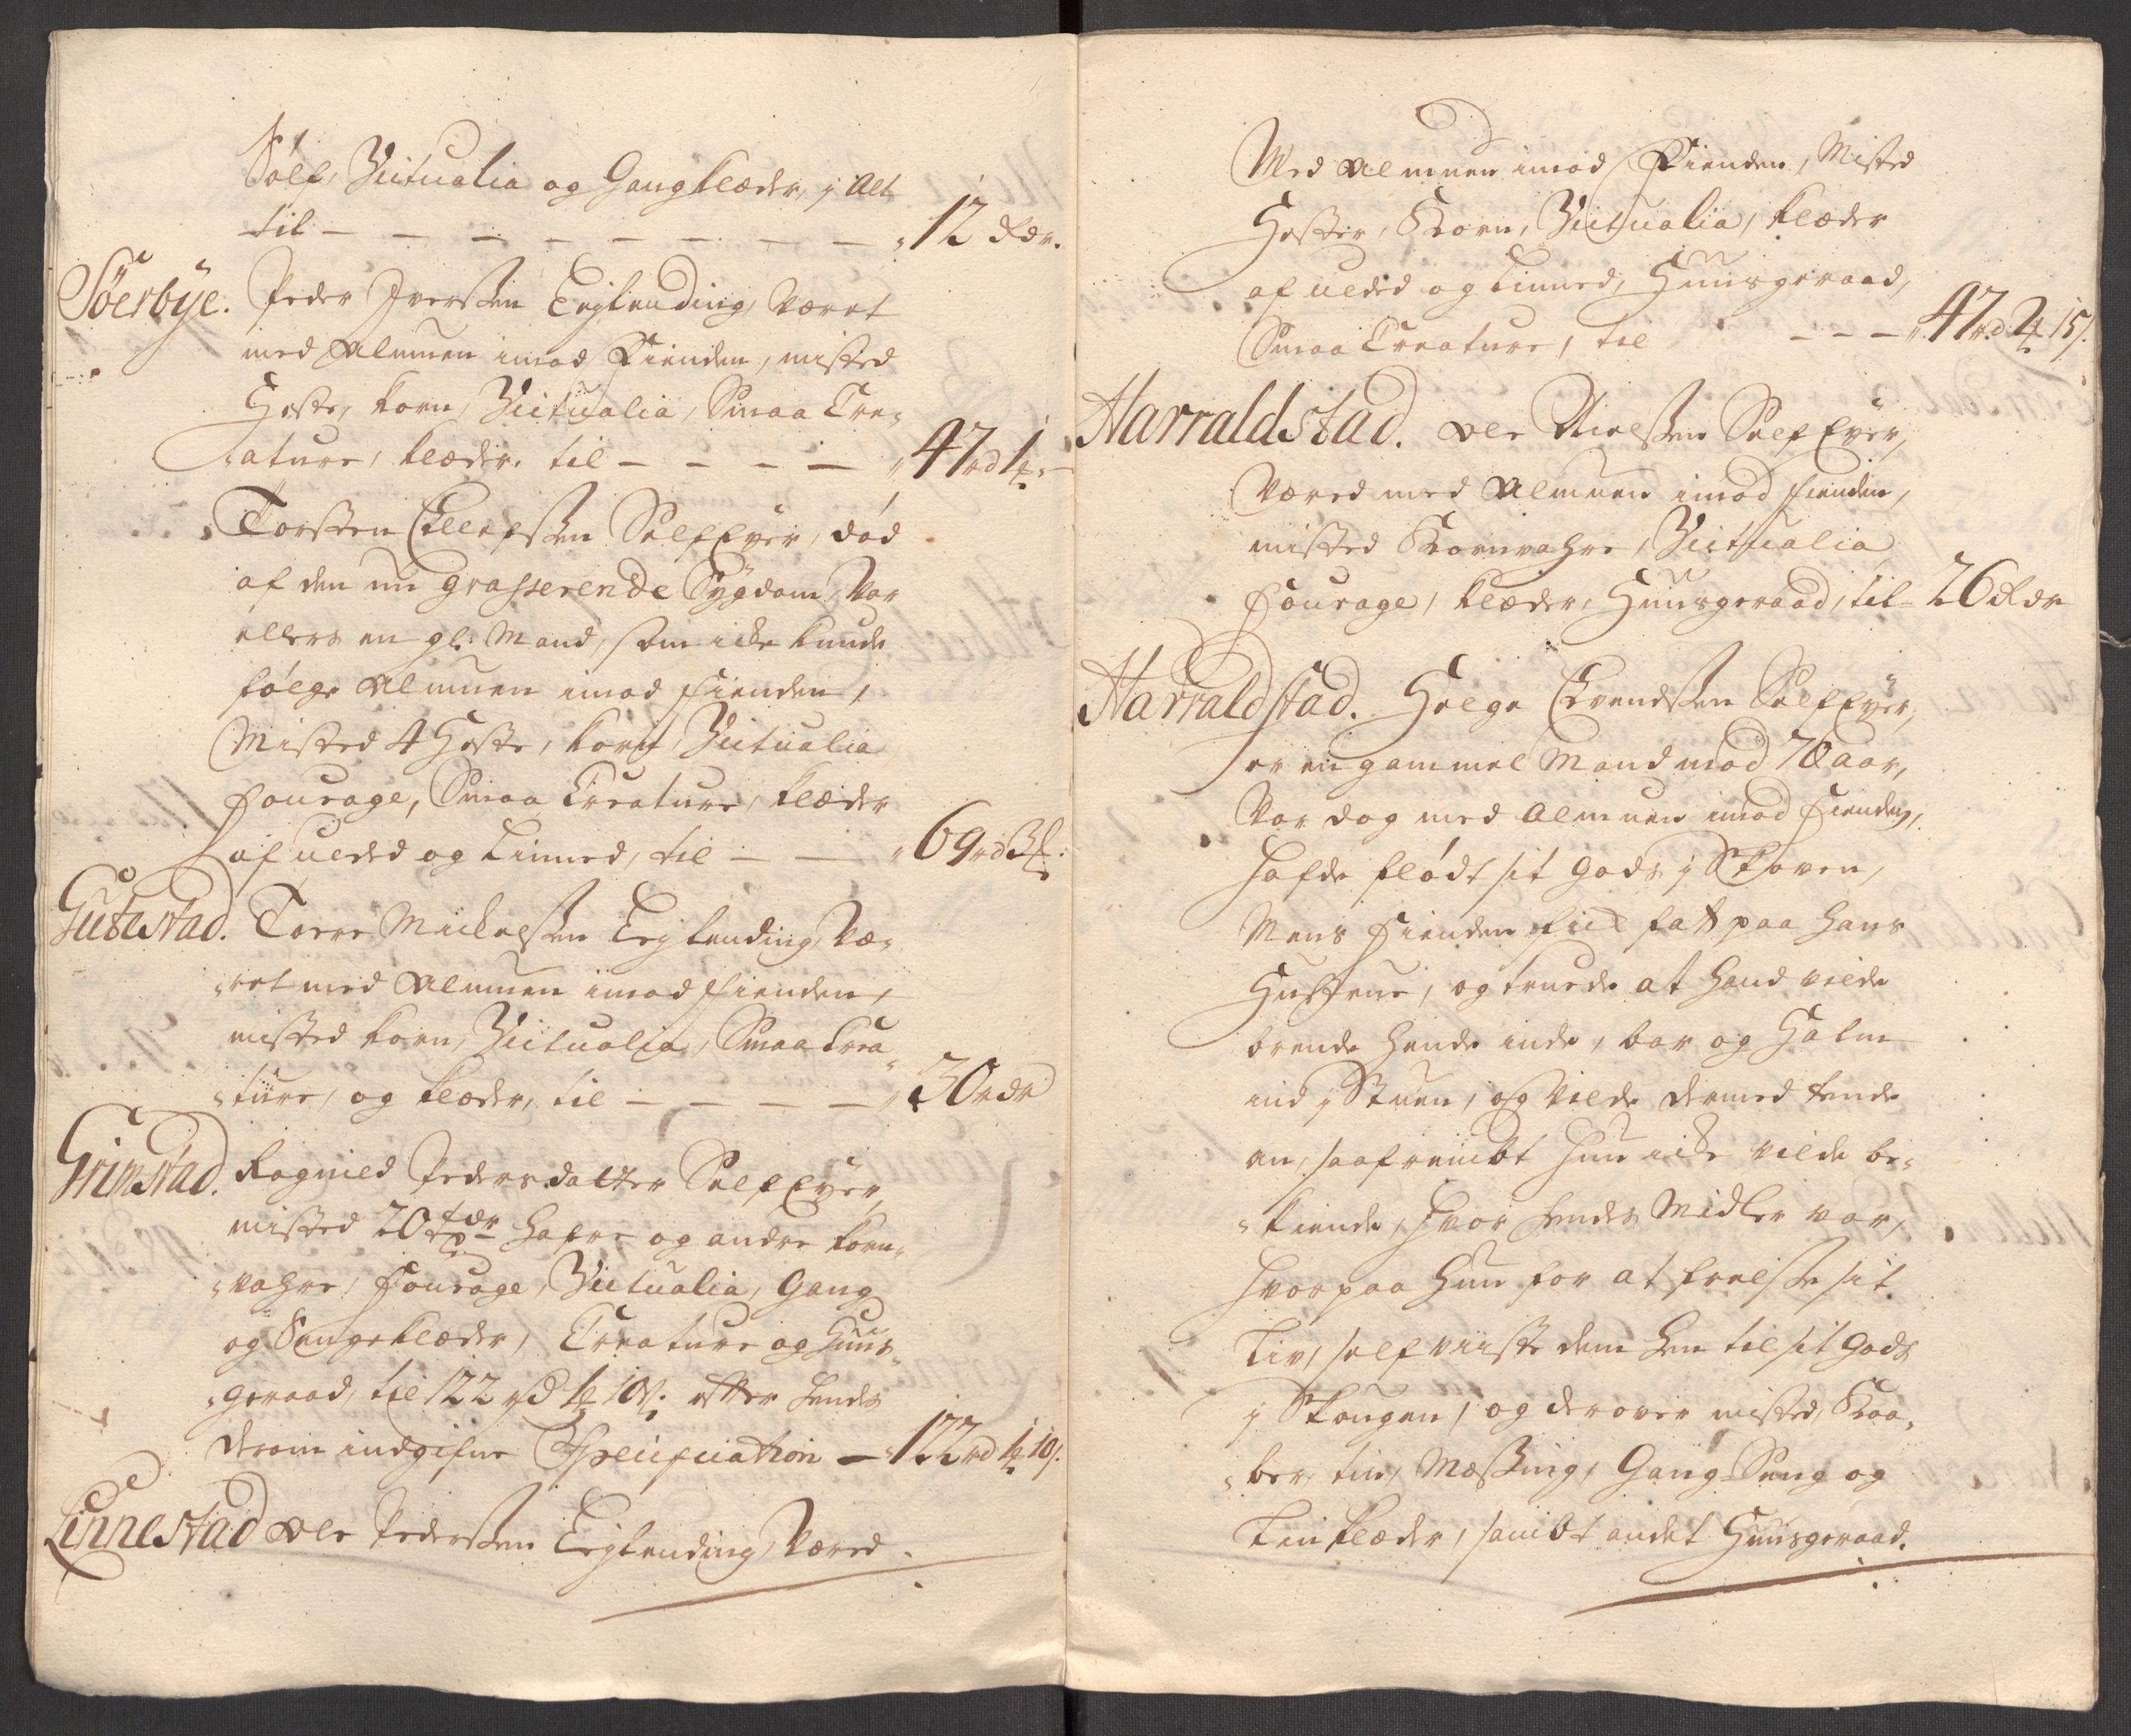 Sølf, Victualia og Gangklæder, j alt
til — — — — — — — — „12 rdr.
Söerbÿe. Peder Iverssen Leÿlending, Været
med Almuen imod Fienden, misted
Heste, korn, Victualia, Smaa Crea-
-ature, klæder, til — — — — „47rd 1 ₰.
Torsten Ellefssen SelfEyer, død
af den nu grasserende Sÿgdom, Var
ellers en gl: Mand, som icke kunde
følge Almuen imod fienden,
Misted 4 Heste, korn, Victualia
fourage, Smaa Creature, klæder
af ulded og Linned, til — — „69rd 3 ₰.
Gutestad. Torre Mickelssen Leÿlending, Væ-
-ret med Almuen imod fienden,
misted korn, Victualia, Smaa Crea-
-ture, og klæder, til — — — — „30rdr
Grimstad. Ragnild Pedersdatter SelfEÿer,
misted 20 tdr Hafre og andre korn-
-vahre, fourage, Victualia, Gang
og Sengeklæder, Creature og Huus-
-geraad, til 122 rd 1 ₰ 10 s. efter hendes
derom indgifne Specification — „122rd 1 ₰ 10 s.
Linnestad Ole Pederssen Leÿlending, Været
Med Almuen imod Fienden, Misted
Hester, Korn, Victualia, klæder
af ulded og Linned, Huusgeraad,
Smaa Creature, til — — — „47rd 2 ₰ 15 s.
Harraldstad. Ole Nielssen SelfEÿer,
Været med Almuen imod fienden,
misted Kornvahre, Victualia
fourage, klæder, Huusgeraad, til - 26 rdr
Harraldstad. Helge Evendssen SelfEÿer,
er en gammel Mand mod 70 aar,
Var dog med Almuen imod fienden,
hafde flødt sit gods j Skoven,
Mens fienden fick fat paa hans
Hustrue, og truede at hand vilde
brende hende inde, bar og Halm
ind j Stuen, og vilde dermed tende
an, saafremt hun icke vilde be-
-kiende, hvor hendes Midler var,
hvorpaa hun for at frelsse sit
Liv, self viiste dem hen til sit gods
j Skougen, og derover misted Kaa-
-ber, tin, Messing, Gang-Seng og
Linklæder, sambt andet Huusgeraad.